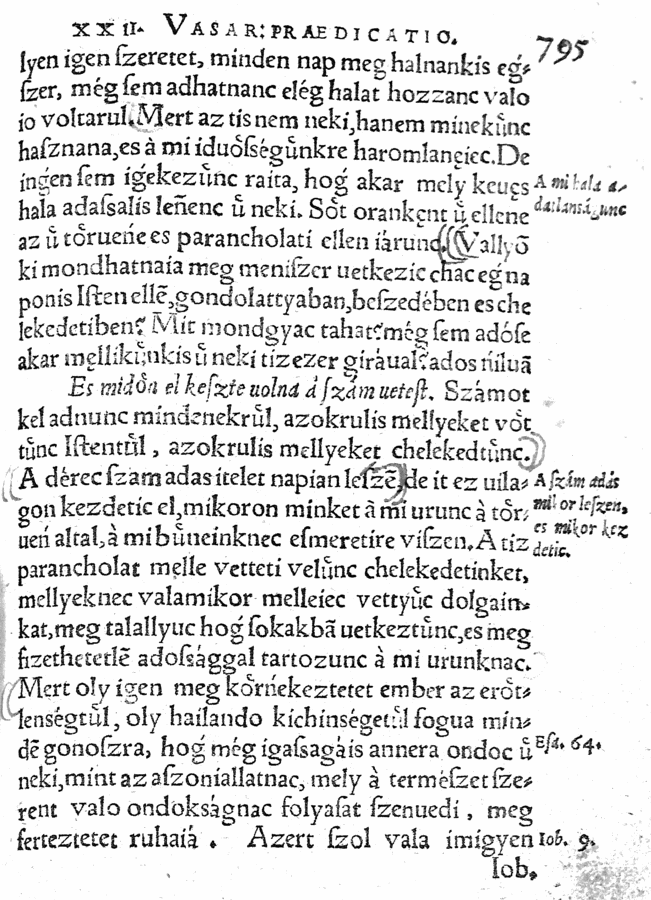 XXII. VASAR: PRAEDICATIO.
795
lyen igen ſzeretet, minden nap meg halnankis eǵ⸗
ſzer, még ſem adhatnanc elég halat hozzanc valo
io voltarul. Mert az tis nem neki, hanem minekůnc
haſznana, es à mi iduỏſségůnkre haromlaneiec. De
ingen ſem iǵekezůnc raita, hoǵ akar mely keues
A mi hala a⸗
hala adaſsalis leńenc ů neki. Sỏt orankent ů ellene
datlanságunc
az ů tỏrueńe es parancholati ellen iàrunc. (Vallyō
ki mondhatnaia meg meniſzer uetkezic chac eǵ na
ponis Iſten ellē, gondolattyaban, beſzedében es che
lekedetiben? Mit mondgyac tahat? még ſem adóſe
akar mellikůnkis ů neki tizezer giràual? ados ńiluā
Es midỏn el keſzte uolna à ſzám ueteſt. Számot
kel adnunc mindenekrůl, azokrulis mellyeket vỏt
tůnc Iſtentůl, azokrulis mellyeket chelekedtůnc.)
A dèrec ſzam adas itelet napian leſzē, de it ez uila⸗
A ſzám adás
gon kezdetic el, mikoron minket à mi urunc à tỏr⸗
mikor leſzen,
ueń altal, à mi bůneinknec eſmeretire viſzen. A tiz
es mikor kez
detic.
parancholat melle vetteti velůnc chelekedetinket,
mellyeknec valamikor melleiec vettyůc dolgain⸗
kat, meg talallyuc hoǵ ſokakbā uetkeztůnc, es meg
fizethetetlē adoſsággal tartozunc à mi urunknac.
Mert oly igen meg kỏrńekeztetet ember az erỏt⸗
lenségtůl, oly hailando kichinségetůl fogua min⸗
dē gonoſzra, hoǵ még igaſsagáis annera ondoc ů
Eſa. 64.
neki, mint az aſzoniallatnac, mely à termèſzet ſze⸗
rent valo ondokságnac folyaſat ſzenuedi, meg
ferteztetet ruhaiá. Azert ſzol vala imigyen
Iob. 9.
Iob,